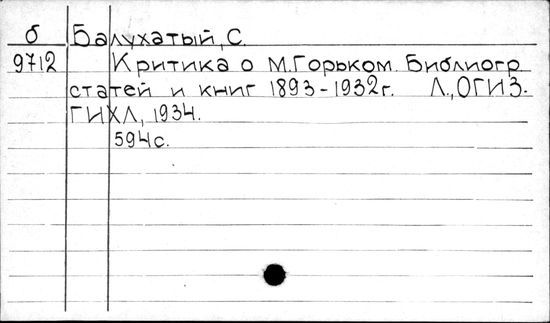 б Балухатый, С.
9712 Критика о М.Горьком. Библиогр
статей и книг 1893-1932г. Л., ОГИЗ.
ГИХЛ, 1934.
594с.